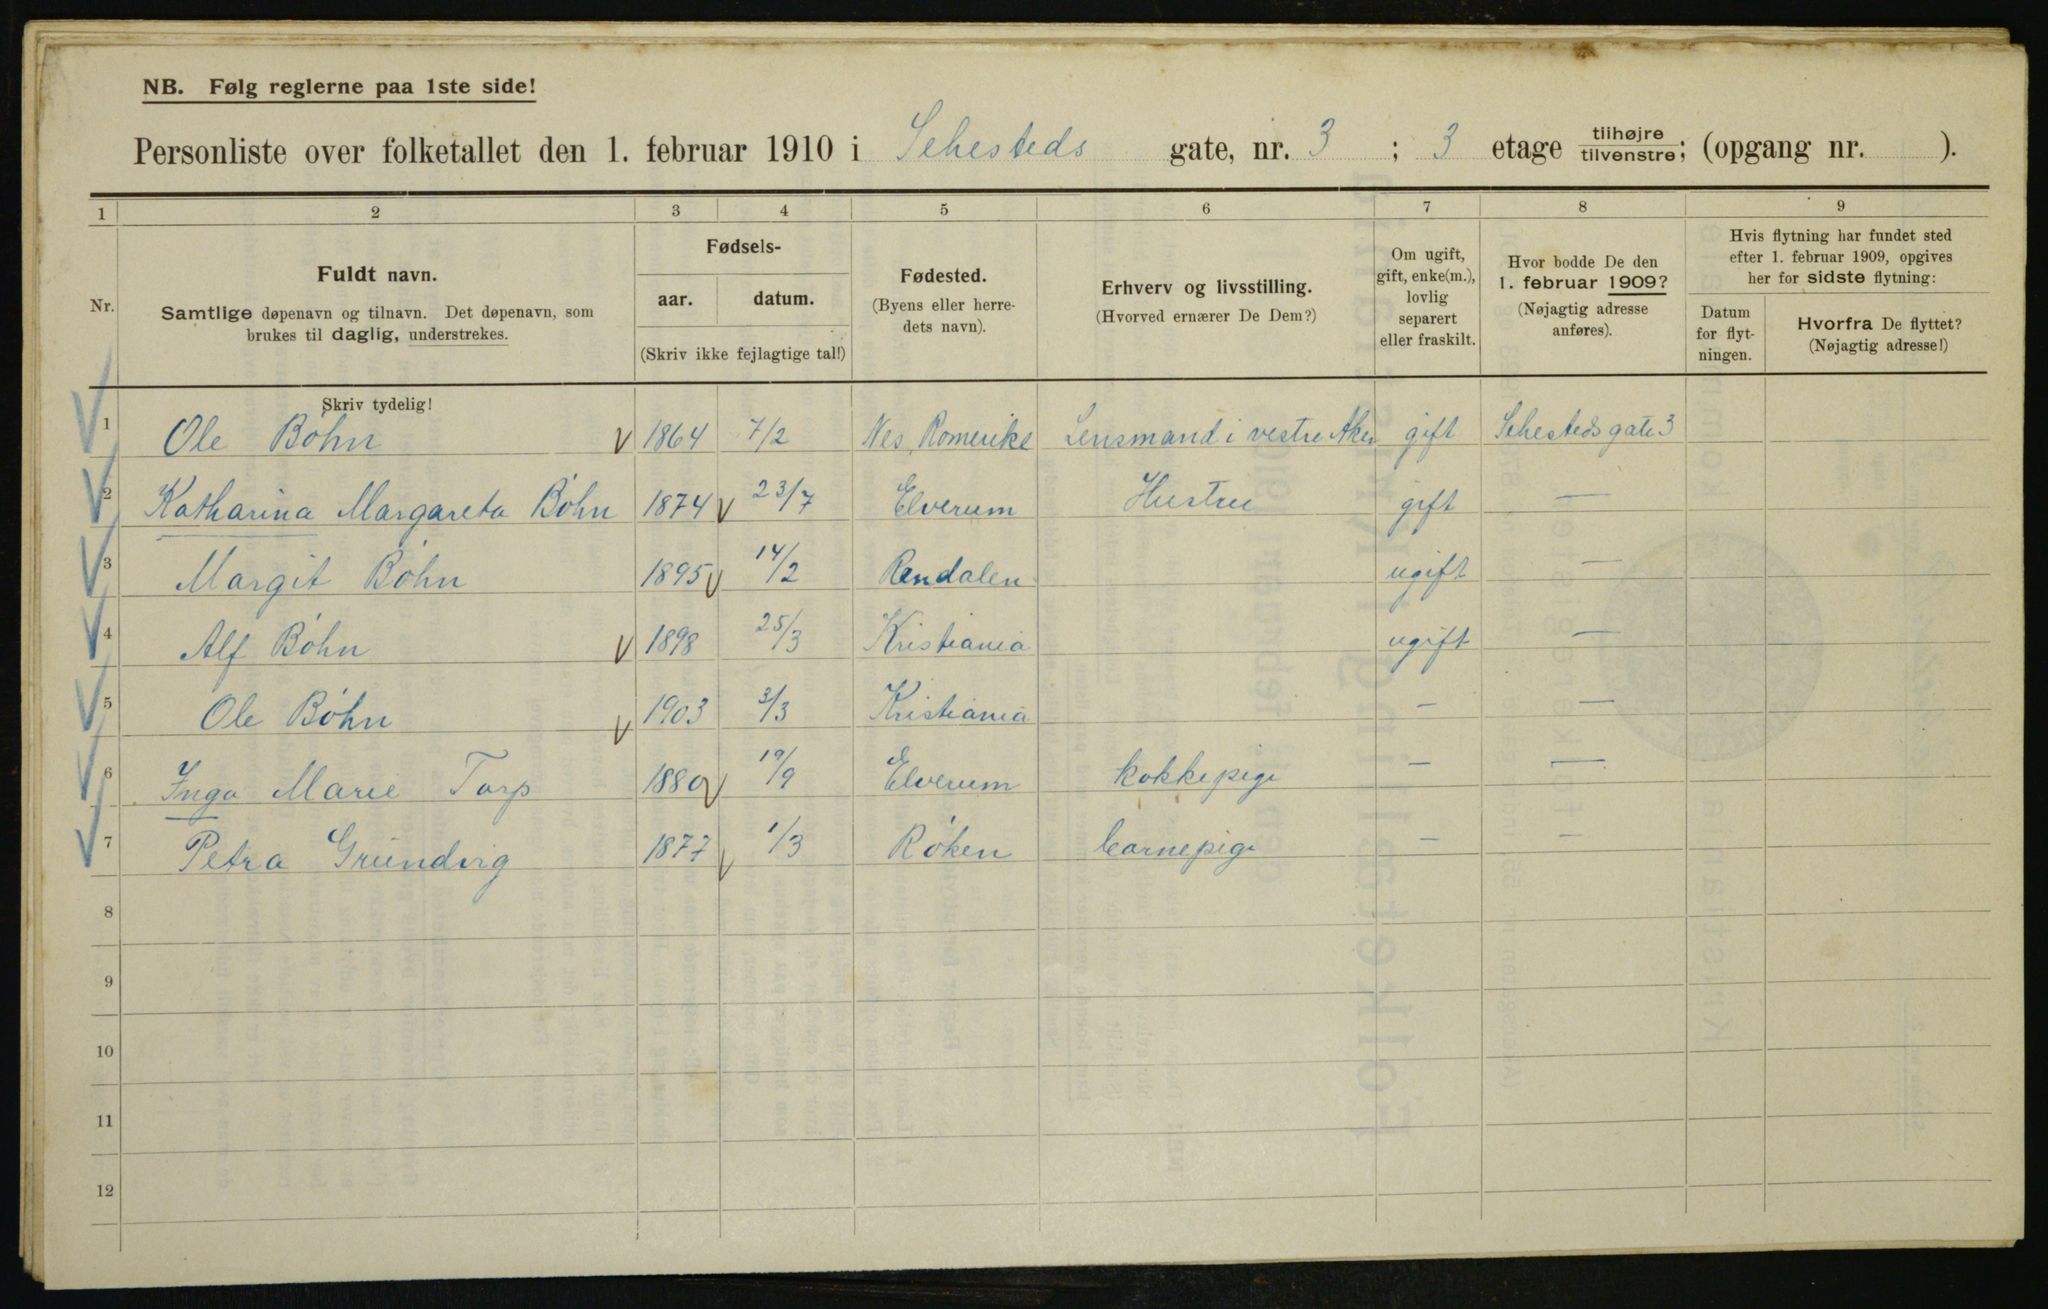 NB. Følg reglerne paa 1ste side!
Personliste over folketallet den 1. februar 1910 i Sehesteds gate, nr. 3 ; 3 etage tilhøjre/tilvenstre; (opgang nr. ).
1 2 3 4 5 6 7 8 9
Nr.
Fuldt navn.
Samtlige døpenavn og tilnavn. Det døpenavn, som
brukes til daglig, understrekes.
Skriv tydelig!
Fødsels-
aar. datum.
(Skriv ikke fejlagtige tal!)
Fødested.
(Byens eller herre-
dets navn).
Erhverv og livsstilling.
(Hvorved ernærer De Dem?)
Om ugift,
gift, enke(m.),
lovlig
separert
eller fraskilt.
Hvor bodde De den
1. februar 1909?
(Nøjagtig adresse
anføres).
Hvis flytning har fundet sted
efter 1. februar 1909, opgives
her for sidste flytning:
Datum
for flyt-
ningen.
Hvorfra De flyttet?
(Nøjagtig adresse!)
1 Ole Bøhn 1864 7/2 Nes, Romerike Lensmand i vestre Aker gift Sehesteds gate 3
2 Katharina Margareta Bøhn 1874 23/7 Elverum Hustru gift —
3 Margit Bøhn 1895 14/2 Rendalen ugift —
4 Alf Bøhn 1898 25/3 Kristiania ugift —
5 Ole Bøhn 1903 3/3 Kristiania — —
6 Inga Marie Torp 1880 19/9 Elverum kokkepige — —
7 Petra Grundvig 1877 1/3 Røken barnepige — —
8
9
10
11
12